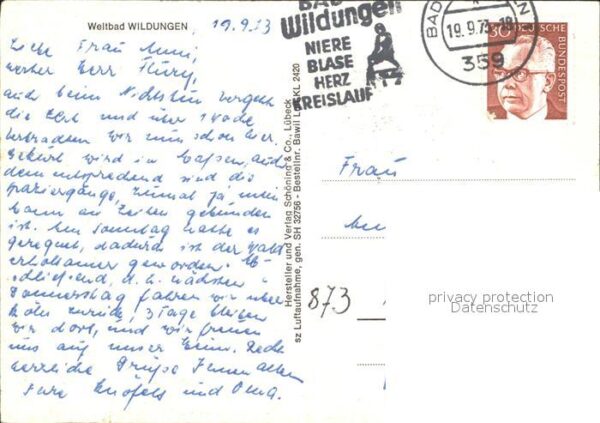 Weltbad WILDUNGEN
19.9.73
Liebe Frau Anni,
werter Herr Flury,
auch beim Nichtstun vergeht
die Zeit und über 1 Woche
wir nun schon hier.
Gekurt wird in Massen, auch
dementsprechend sind die
Spaziergänge, zumal ja mein
Mann an Zeiten gebunden
ist. Am Sonntag hatte es
geregnet, dadurch ist der Wald
erholsamer geworden.
schließend, d.h. nächsten
Donnerstag fahren wir über
zurück, 3 Tage bleiben
wir dort, und wir freuen
uns auf unser Heim. Recht
herzliche Grüße Ihnen allen
Ihre und Oma.
Hersteller und Verlag Schöning & Co., Lübeck
sz Luftaufnahme, gen. SH 32756 - Bestellnr. Bawil L KL 2420
BAD
Wildungen
NIERE
BLASE
HERZ
KREISLAUF
BAD
19.9.73-18
359
30
DEUTSCHE BUNDESPOST
Frau
873
privacy protection
Datenschutz